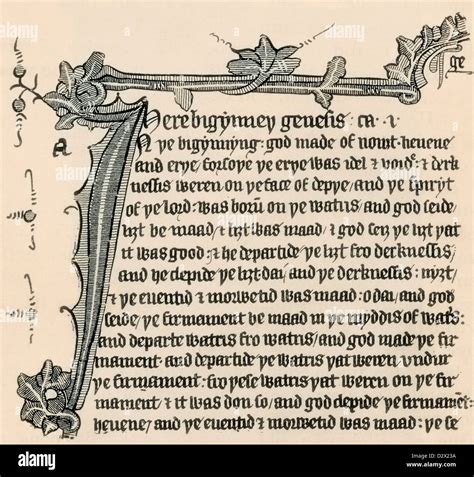 ge
Here bigynney genesis: ca. i
a
N ye bigynnyng: god made of nowt·heuene
and erye, forsoye ye erye was idel & voyd: & derk
nessis weren on ye face of depye, and ye spiryt
of ye lord: was born on ye watris, and god seide,
lizt be maad, & lizt was maad, & god sey ye lizt yat
it was good: & he departide ye lizt fro derknessis,
and he clepide ye lizt·dai, and ye derknessis: nyzt
& ye euentid & morwetid was maad: o dai, and god
seide, ye firmament be maad in ye myddis of wats:
and departe watris fro watris, and god made ye fir
mament·and departide ye watris yat weren vndur
ye firmament: fro yese watris yat weren on ye fir
mament, & it was don so, and god clepide ye firmamēt
heuene, and ye euentid & morwetid was maad: ye se
alamy
D2X23A
www.alamy.com